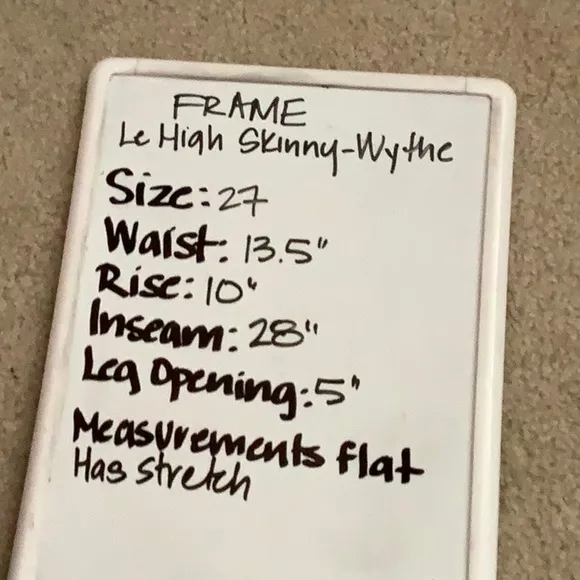 FRAME
Le High Skinny-Wythe
Size: 27
Waist: 13.5"
Rise: 10"
Inseam: 28"
Leg Opening: 5"
Measurements flat
Has stretch